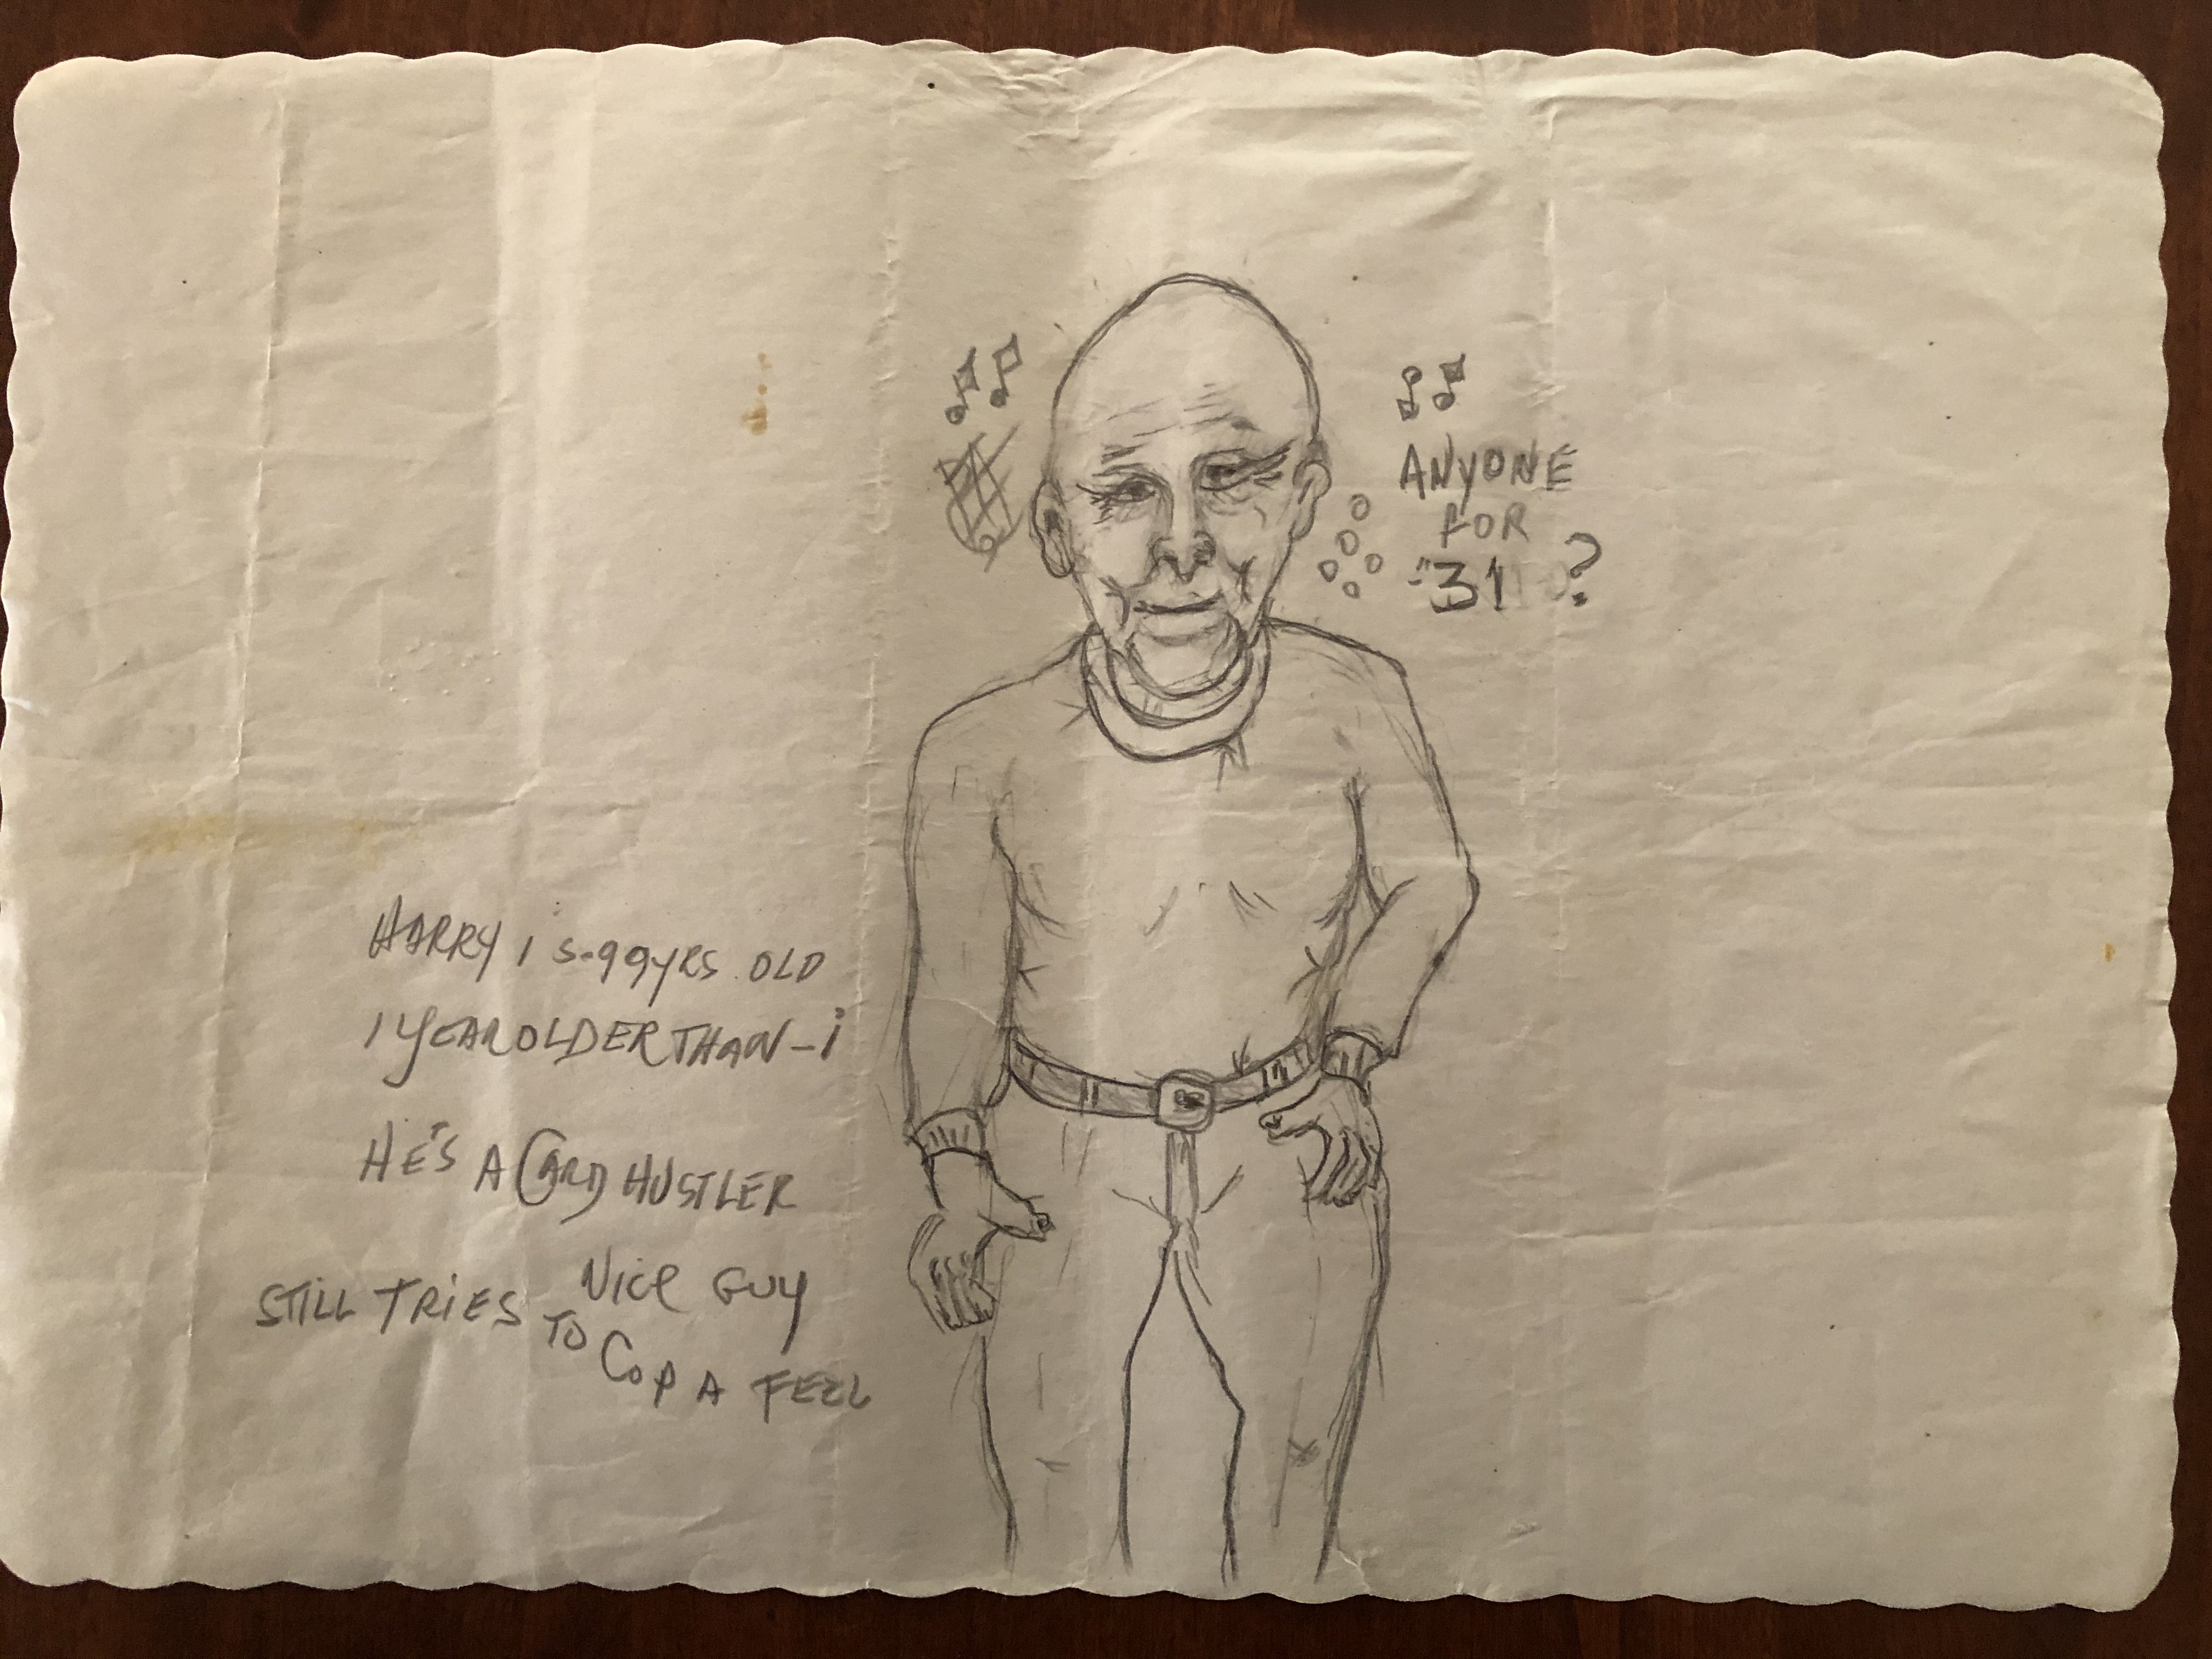 ANYONE
FOR
"31 ?
HARRY iS-99YRS OLD
1 YEAR OLDER THAN-i
HE'S A CARD HUSTLER
NiCE GUY
STiLL TRiES TO COP A FEEL